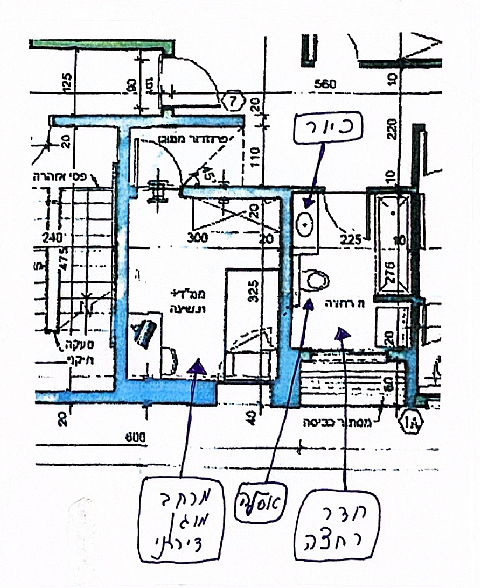 125
90
100
7
20
560
10
כיור
פרוזדור ממוגן
110
220
20
45
פסי אזהרה
10
20
240
300
20
225
10
475
325
276
ממ"ד+
ח רחצה
20
60
20
40
מסתור כביסה
1A
600
מרחב
מוגן
דירתי
אסלה
חדר
רחצה